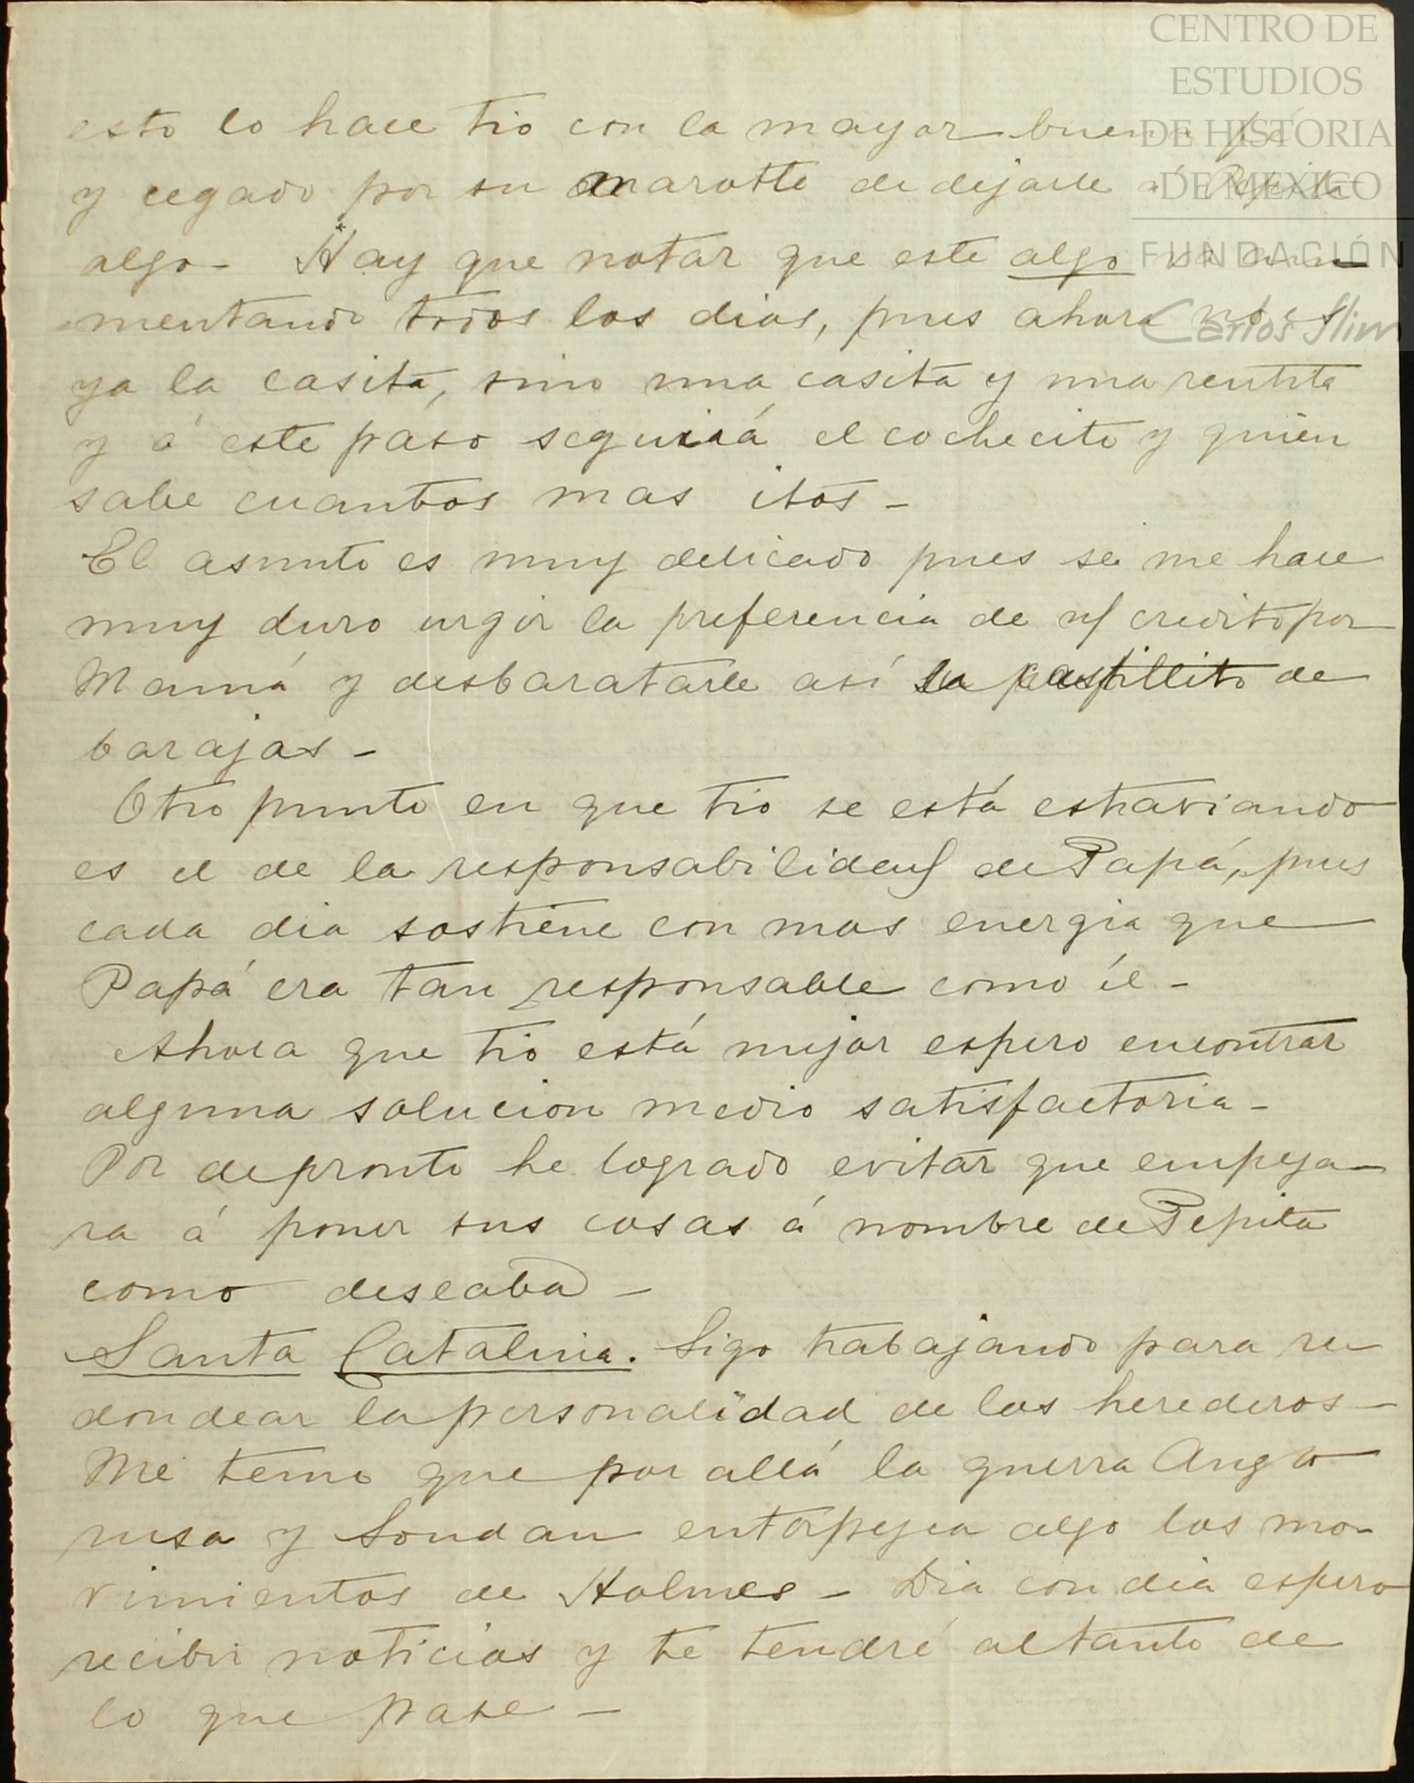 CENTRO DE
ESTUDIOS
DE HISTORIA
DE MEXICO
FUNDACIÓN
Carlos Slim
esto lo hace tio con la mayor buena fé
y cegado por su marotte de dejarle á Pepita
algo - Hay que notar que este algo va au
mentando todos los dias, pues ahora no es
ya la casita, sino una casita y una rentita
y á este paso seguirá el cochecito y quien
sabe cuantos mas itos -
El asunto es muy delicado pues se me hace
muy duro urgir la preferencia de n/ credito por
Mamá y desbaratarle así su castillito de
barajas -
Otro punto en que tio se está estraviando
es el de la responsabilidad de Papá, pues
cada dia sostiene con mas energia que
Papá era tan responsable como él -
Ahora que tio está mejor espero encontrar
alguna solucion medio satisfactoria -
Por depronto he logrado evitar que empeza-
ra á poner sus cosas á nombre de Pepita
como deseaba -
Santa Catalina. Sigo trabajando para re
dondear la personalidad de los herederos -
Me temo que por allá la guerra Anglo
rusa y Soudan entorpezca algo los mo-
vimientos de Holmes - Dia con dia espero
recibir noticias y te tendré al tanto de
lo que pase -